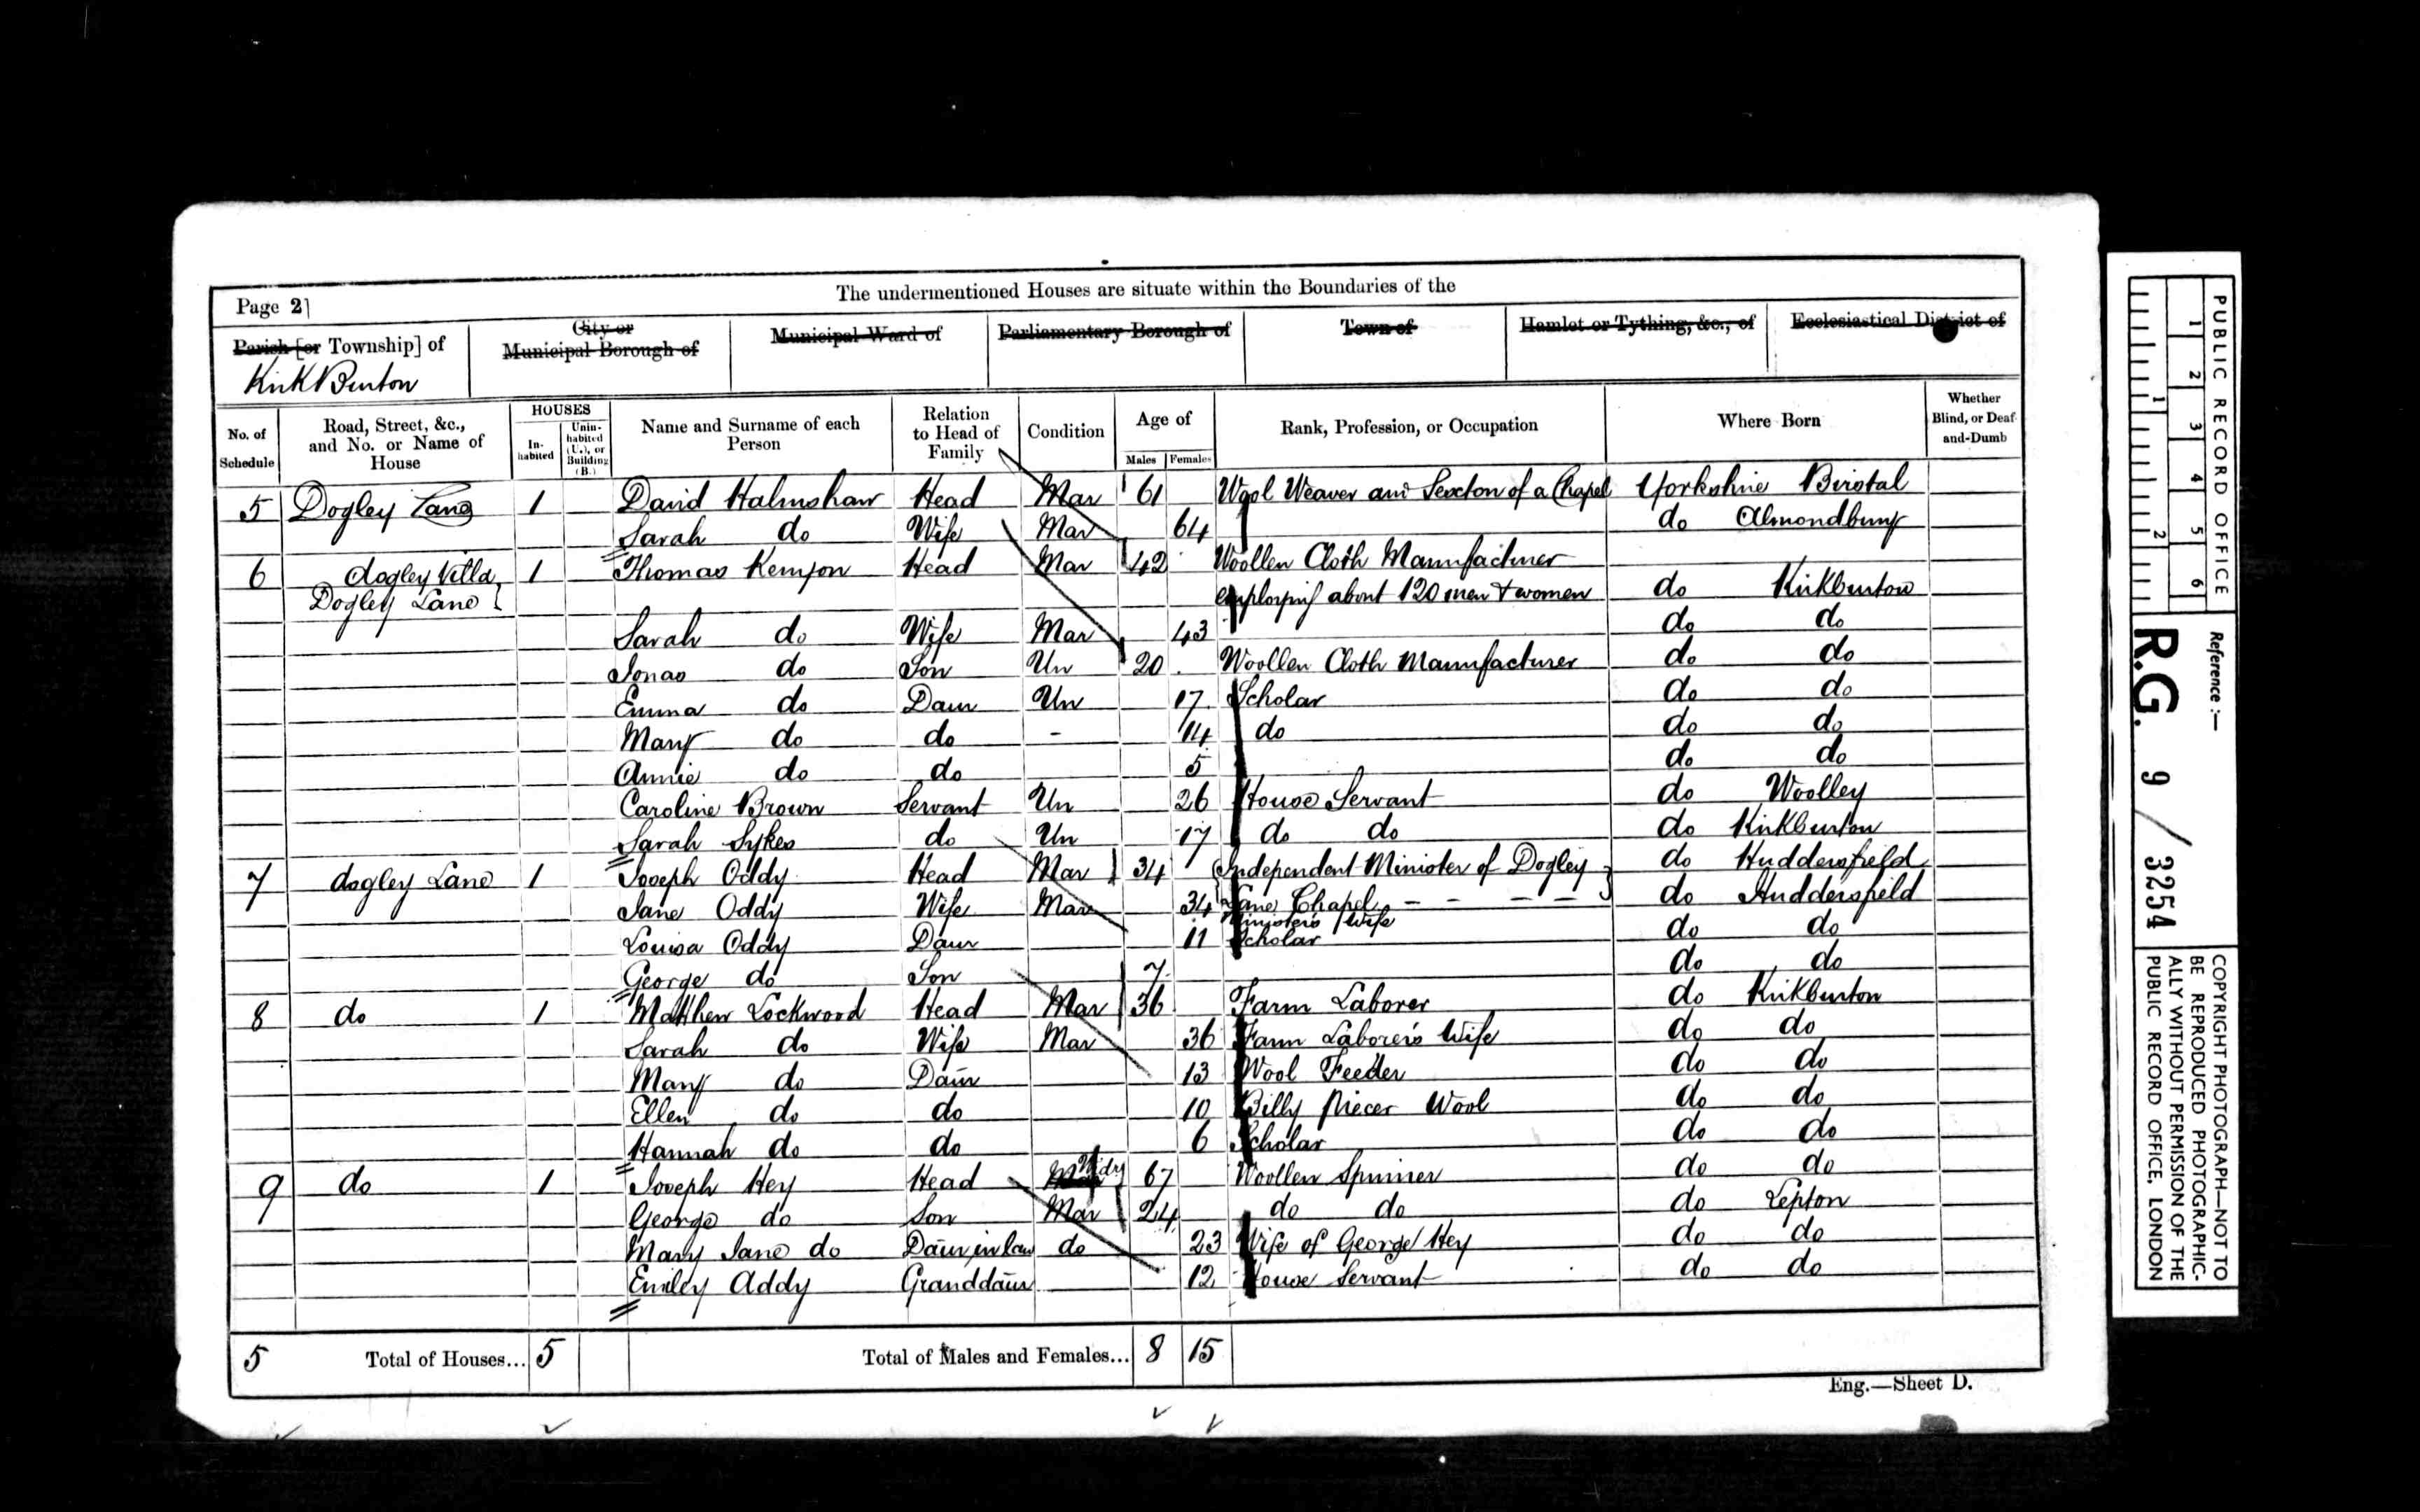 The undermentioned Houses are situate within the Boundaries of the
Page 2]
Parish [or Township] of
City or Municipal Borough of
Municipal Ward of
Parliamentary Borough of
Town of
Hamlet or Tything, &c., of
Ecclesiastical District of
KirkBurton
No. of Schedule
Road, Street, &c., and No. or Name of House
HOUSES
In-habited
Unin-habited (U.), or Building (B.)
Name and Surname of each Person
Relation to Head of Family
Condition
Age of
Males
Females
Rank, Profession, or Occupation
Where Born
Whether Blind, or Deaf-and-Dumb
5 Dogley Lane 1 David Halmshaw Head Mar 61 Wool Weaver and Sexton of a Chapel Yorkshire Birstal
Sarah do Wife Mar 64 do Almondbury
6 dogley Villa, 1 Thomas Kenyon Head Mar 42 Woollen Cloth Manufacturer
Dogley Lane employing about 120 men & women do Kirkburton
Sarah do Wife Mar 43 do do
Jonas do Son Un 20 Woollen Cloth Manufacturer do do
Emma do Daur Un 17 Scholar do do
Mary do do - 14 do do do
Annie do do 5 do do
Caroline Brown Servant Un 26 House Servant do Woolley
Sarah Sykes do Un 17 do do do Kirkburton
7 dogley Lane 1 Joseph Oddy Head Mar 34 Independent Minister of Dogley do Huddersfield
Jane Oddy Wife Mar 34 Lane Chapel - - - - do Huddersfield
Ministers wife
Louisa Oddy Daur 11 Scholar do do
George do Son 7 do do
8 do 1 Matthew Lockwood Head Mar 36 Farm Laborer do Kirkburton
Sarah do Wife Mar 36 Farm Laborer's Wife do do
Mary do Daur 13 Wool Feeder do do
Ellen do do 10 Billy Piecer Wool do do
Hannah do do 6 Scholar do do
9 do 1 Joseph Hey Head Widr 67 Woollen Spinner do do
George do Son Mar 24 do do do Lepton
Mary Jane do Daur in law do 23 Wife of George Hey do do
Emiley Addy Granddaur 12 House Servant do do
5 Total of Houses... 5 Total of Males and Females... 8 15
Eng.—Sheet D.
PUBLIC RECORD OFFICE
1 2 3 4 5 6
1 2
Reference :—
R.G. 9 / 3254
COPYRIGHT PHOTOGRAPH—NOT TO
BE REPRODUCED PHOTOGRAPHIC-
ALLY WITHOUT PERMISSION OF THE
PUBLIC RECORD OFFICE, LONDON